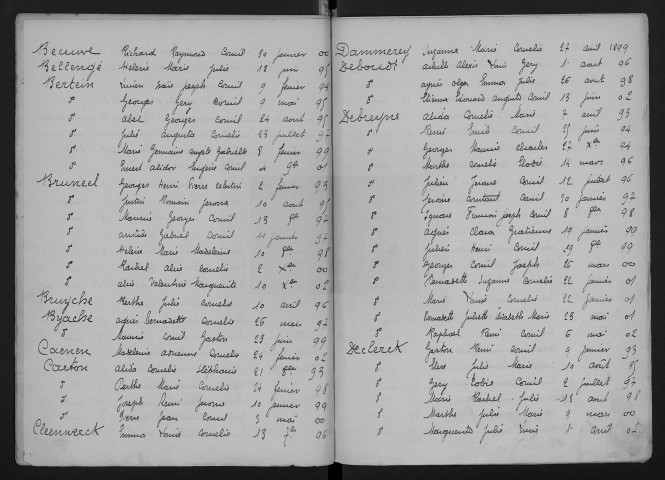 Becuwe Richard Raymond Cornil 20 janvier 00
Bellengé Hélène Marie Julie 18 juin 95
Bertein Lucien joseph Cornil 9 février 94
d° Georges Géry Cornil 9 mai 95
d° abel Georges Cornil 24 août 95
d° Julie Augusta Cornélie 23 juillet 97
d° Marie Germaine Gabrielle 8 février 99
d° Ernest alidor Eugène Cornil 4 9bre 01
Bruneel Georges Henri Pierre Célestin 2 janvier 93
d° Justin Romain Jérome 10 août 95
d° Maurice Georges Cornil 13 8bre 97
d° Gabriel Cornil 11 janvier 97
d° Hélène Marie Madeleine 10 98
d° Rachel alice Cornélie 2 Xbre 00
d° alice Valentine Marguerite 10 Xbre 02
Bruyche Marthe Julie Cornélie 10 avril 96
Byache agnès Bernadette Cornélie 26 mars 97
d° Maurice Cornil Gaston 23 juin 99
Caenen Madeleine adrienne Cornélie 24 février 02
Carton alida Cornélie Stéphanie 21 8bre 93
d° Berthe Marie Cornélie 24 février 98
d° Joseph Remi Jérome 10 janvier 99
d° Pierre Jean Cornil 3 mai 00
Cleenwerck Emma Louise Cornélie 13 7bre 96
Dammerey Suzanne Marie Cornélie 27 avril 1899
Deboudt achille alexis Louis Géry 1 août 96
d° agnès olga Emma Julie 26 août 98
d° Etienne Edouard Auguste Cornil 13 juin 02
Debreyne alida Cornélie Marie 7 avril 93
d° René Cornil 25 juin 94
d° Georges Maurice Charles 27 Xbre 94
d° Marthe Cornélie 14 mars 96
d° Julien Jérome Cornil 12 juillet 96
d° Jérome Constant Cornil 30 janvier 97
d° Ignace François joseph Cornil 8 98
d° agnès Clara Gratienne 19 janvier 90
d° Julien Henri Cornil 29 99
d° Georges Cornil Joseph 26 mars 00
d° Bernadette Suzanne Cornélie 22 janvier 01
d° Marie Louise Cornélie 22 janvier 01
d° Bernadette Juliette Elisabeth Marie 23 mai 01
d° Raphael Remi Cornil 6 mai 02
Declerck Gaston René Cornil 9 janvier 93
d° Elise Julie Marie 10 août 95
d° Géry Cornil 2 juillet 97
d° Marie Rachel Julie 13 août 98
d° Marthe Julie Marie 9 mars 00
d° Marguerite Julie 1 avril 02